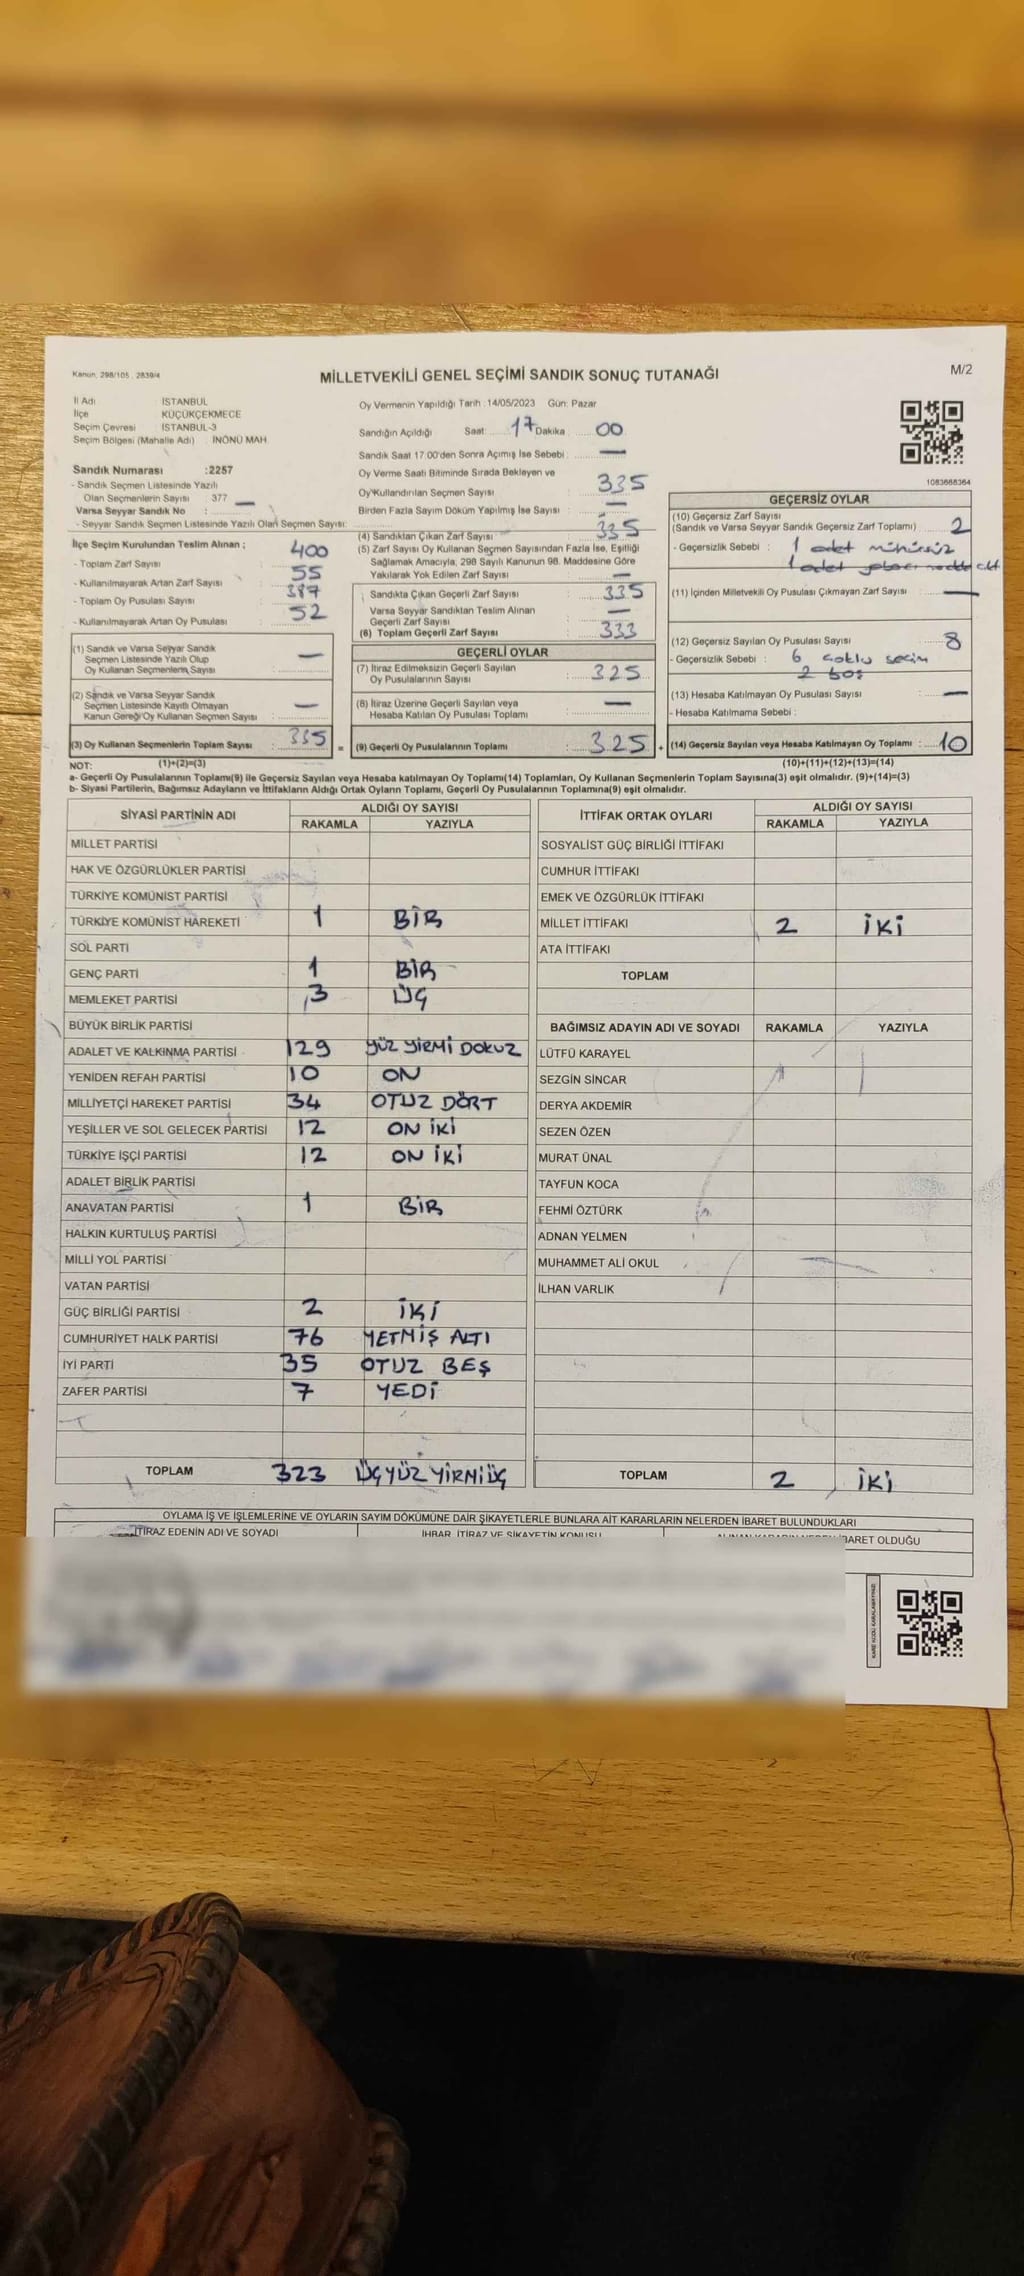 Kanun, 298/105 . 2839/4
MİLLETVEKİLİ GENEL SEÇİMİ SANDIK SONUÇ TUTANAĞI
M/2
İl Adı : İSTANBUL
İlçe : KÜÇÜKÇEKMECE
Seçim Çevresi : İSTANBUL-3
Seçim Bölgesi (Mahalle Adı) : İNÖNÜ MAH.
Sandık Numarası :2257
- Sandık Seçmen Listesinde Yazılı
Olan Seçmenlerin Sayısı : 377
Varsa Seyyar Sandık No : —
- Seyyar Sandık Seçmen Listesinde Yazılı Olan Seçmen Sayısı:
İlçe Seçim Kurulundan Teslim Alınan ;
- Toplam Zarf Sayısı : 400
- Kullanılmayarak Artan Zarf Sayısı : 55
- Toplam Oy Pusulası Sayısı : 387
- Kullanılmayarak Artan Oy Pusulası : 52
(1) Sandık ve Varsa Seyyar Sandık
Seçmen Listesinde Yazılı Olup
Oy Kullanan Seçmenlerin Sayısı : —
(2) Sandık ve Varsa Seyyar Sandık
Seçmen Listesinde Kayıtlı Olmayan
Kanun Gereği Oy Kullanan Seçmen Sayısı : —
(3) Oy Kullanan Seçmenlerin Toplam Sayısı : 335 =
(1)+(2)=(3)
Oy Vermenin Yapıldığı Tarih :14/05/2023 Gün: Pazar
Sandığın Açıldığı Saat: 17 Dakika : 00
Sandık Saat 17:00'den Sonra Açımış İse Sebebi : —
Oy Verme Saati Bitiminde Sırada Bekleyen ve
Oy Kullandırılan Seçmen Sayısı : 335
Birden Fazla Sayım Döküm Yapılmış İse Sayısı : —
(4) Sandıktan Çıkan Zarf Sayısı : 335
(5) Zarf Sayısı Oy Kullanan Seçmen Sayısından Fazla İse, Eşitliği
Sağlamak Amacıyla, 298 Sayılı Kanunun 98. Maddesine Göre
Yakılarak Yok Edilen Zarf Sayısı : —
Sandıkta Çıkan Geçerli Zarf Sayısı : 335
Varsa Seyyar Sandıktan Teslim Alınan
Geçerli Zarf Sayısı : —
(6) Toplam Geçerli Zarf Sayısı : 333
GEÇERLİ OYLAR
(7) İtiraz Edilmeksizin Geçerli Sayılan
Oy Pusulalarının Sayısı : 325
(8) İtiraz Üzerine Geçerli Sayılan veya
Hesaba Katılan Oy Pusulası Toplamı : —
(9) Geçerli Oy Pusulalarının Toplamı : 325 +
1083668364
GEÇERSİZ OYLAR
(10) Geçersiz Zarf Sayısı
(Sandık ve Varsa Seyyar Sandık Geçersiz Zarf Toplamı) : 2
- Geçersizlik Sebebi : 1 adet mühürsüz
1 adet
(11) İçinden Milletvekili Oy Pusulası Çıkmayan Zarf Sayısı : —
(12) Geçersiz Sayılan Oy Pusulası Sayısı : 8
- Geçersizlik Sebebi : 6 çoklu seçim
2 boş
(13) Hesaba Katılmayan Oy Pusulası Sayısı : —
- Hesaba Katılmama Sebebi :
(14) Geçersiz Sayılan veya Hesaba Katılmayan Oy Toplamı : 10
(10)+(11)+(12)+(13)=(14)
NOT:
a- Geçerli Oy Pusulalarının Toplamı(9) ile Geçersiz Sayılan veya Hesaba katılmayan Oy Toplamı(14) Toplamları, Oy Kullanan Seçmenlerin Toplam Sayısına(3) eşit olmalıdır. (9)+(14)=(3)
b- Siyasi Partilerin, Bağımsız Adayların ve İttifakların Aldığı Ortak Oyların Toplamı, Geçerli Oy Pusulalarının Toplamına(9) eşit olmalıdır.
SİYASİ PARTİNİN ADI ALDIĞI OY SAYISI
RAKAMLA YAZIYLA
MİLLET PARTİSİ
HAK VE ÖZGÜRLÜKLER PARTİSİ
TÜRKİYE KOMÜNİST PARTİSİ
TÜRKİYE KOMÜNİST HAREKETİ 1 BİR
SOL PARTİ
GENÇ PARTİ 1 BİR
MEMLEKET PARTİSİ 3 ÜÇ
BÜYÜK BİRLİK PARTİSİ
ADALET VE KALKINMA PARTİSİ 129 YÜZ YİRMİ DOKUZ
YENİDEN REFAH PARTİSİ 10 ON
MİLLİYETÇİ HAREKET PARTİSİ 34 OTUZ DÖRT
YEŞİLLER VE SOL GELECEK PARTİSİ 12 ON İKİ
TÜRKİYE İŞÇİ PARTİSİ 12 ON İKİ
ADALET BİRLİK PARTİSİ
ANAVATAN PARTİSİ 1 BİR
HALKIN KURTULUŞ PARTİSİ
MİLLİ YOL PARTİSİ
VATAN PARTİSİ
GÜÇ BİRLİĞİ PARTİSİ 2 İKİ
CUMHURİYET HALK PARTİSİ 76 YETMİŞ ALTI
İYİ PARTİ 35 OTUZ BEŞ
ZAFER PARTİSİ 7 YEDİ
TOPLAM 323 ÜÇYÜZ YİRMİ ÜÇ
İTTİFAK ORTAK OYLARI ALDIĞI OY SAYISI
RAKAMLA YAZIYLA
SOSYALİST GÜÇ BİRLİĞİ İTTİFAKI
CUMHUR İTTİFAKI
EMEK VE ÖZGÜRLÜK İTTİFAKI
MİLLET İTTİFAKI 2 İKİ
ATA İTTİFAKI
TOPLAM
BAĞIMSIZ ADAYIN ADI VE SOYADI RAKAMLA YAZIYLA
LÜTFÜ KARAYEL
SEZGİN SİNCAR
DERYA AKDEMİR
SEZEN ÖZEN
MURAT ÜNAL
TAYFUN KOCA
FEHMİ ÖZTÜRK
ADNAN YELMEN
MUHAMMET ALİ OKUL
İLHAN VARLIK
TOPLAM 2 İKİ
OYLAMA İŞ VE İŞLEMLERİNE VE OYLARIN SAYIM DÖKÜMÜNE DAİR ŞİKAYETLERLE BUNLARA AİT KARARLARIN NELERDEN İBARET BULUNDUKLARI
İTİRAZ EDENİN ADI VE SOYADI İHBAR, İTİRAZ VE ŞİKAYETİN KONUSU ALINAN KARARIN NEDEN İBARET OLDUĞU
KARE KODU KARALAMAYINIZ!